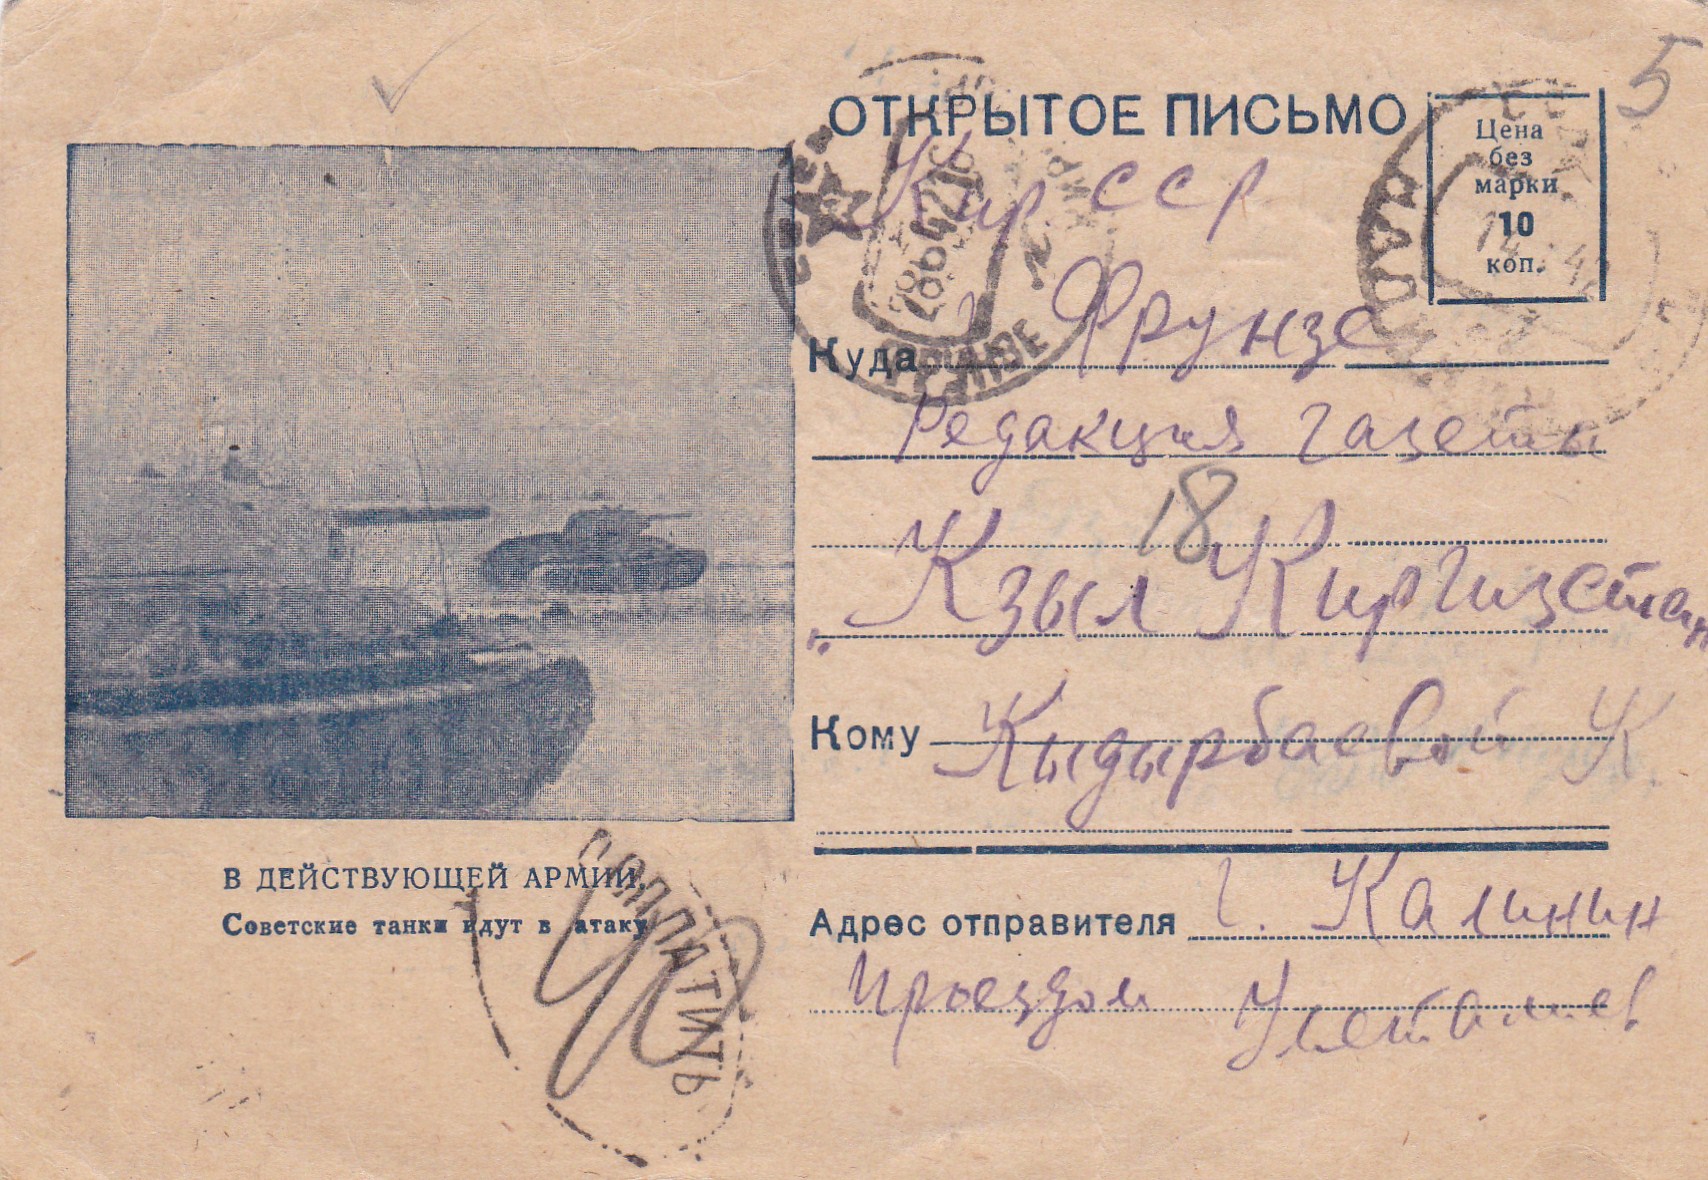 5
ОТКРЫТОЕ ПИСЬМО
Цена
без
марки
10
коп.
Кир ССР
28 6 42 16
ФРУНЗЕ
Куда г Фрунзе
Редакция газеты
18
„Кзыл Киргизстан"
Кому Кыдырбаевой К.
В ДЕЙСТВУЮЩЕЙ АРМИИ.
Советские танки идут в атаку
ДОПЛАТИТЬ
Адрес отправителя г. Калинин
проездом